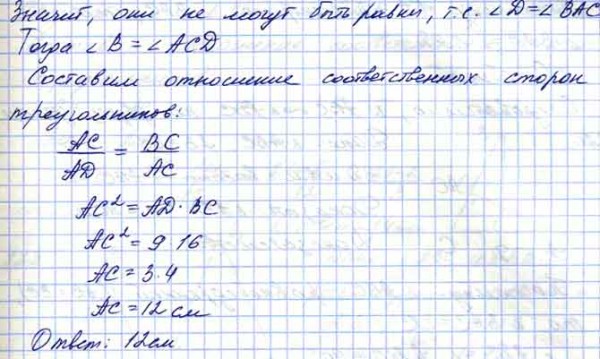 Значит, они не могут быть равны, т.е. ∠D=∠BAC
Тогда ∠B = ∠ACD
Составим отношение соответственных сторон
треугольников:
AC/AD = BC/AC
AC² = AD · BC
AC² = 9 · 16
AC = 3 · 4
AC = 12 см
Ответ: 12 см